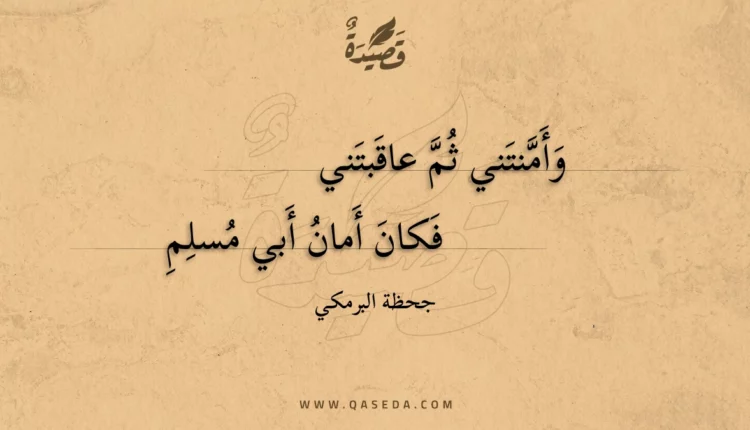 قَصِيدَةٌ
وَأَمَّنتَني ثُمَّ عاقَبتَني
فَكانَ أَمانُ أَبي مُسلِمِ
جحظة البرمكي
WWW.QASEDA.COM